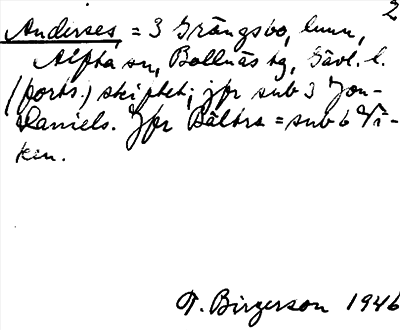 2
Anderses = 3 Grängsbo, hmn,
Alfta sn, Bollnäs tg, Gävl. l.
(forts.) skiftet; jfr sub 3 Jon-
Daniels. Jfr Bältra = sub 6 Vi-
ken.
T. Birgerson 1946